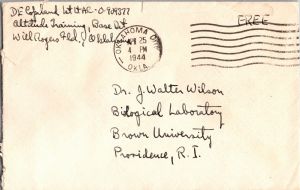 DE Copeland 1st Lt AC-O-909377
Altitude Training, Base Det
Will Rogers Fld., Oklahoma
OKLAHOMA CITY
APR 25
4 PM
1944
OKLA.
FREE
Dr. J. Walter Wilson
Biological Laboratory
Brown University
Providence, R. I.